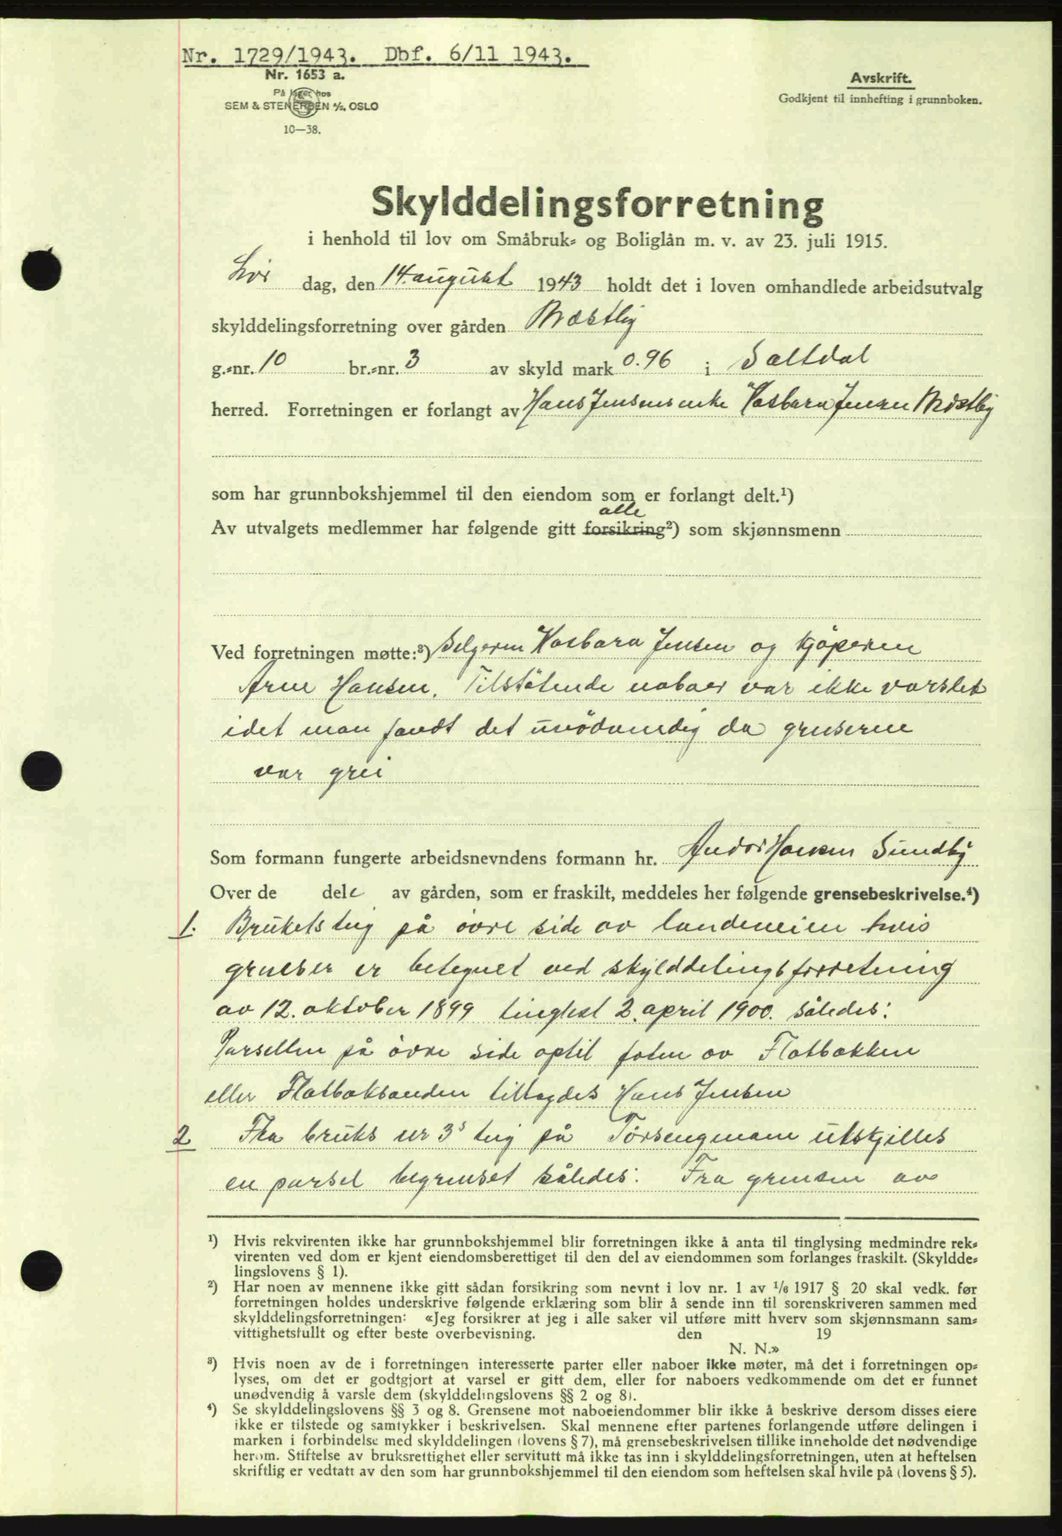 Nr. 1729/1943. Dbf. 6/11 1943.
Nr. 1653 a.
På lager hos
SEM & STENERSEN A/S. OSLO
10—38.
Avskrift.
Godkjent til innhefting i grunnboken.
Skylddelingsforretning
i henhold til lov om Småbruk- og Boliglån m. v. av 23. juli 1915.
Lør dag, den 14. august 1943 holdt det i loven omhandlede arbeidsutvalg
skylddelingsforretning over gården Mæstby
g.-nr. 10 br.-nr. 3 av skyld mark 0.96 i Saltdal
herred. Forretningen er forlangt av Hans Jensens enke Hasbara Jensen Mæstby
som har grunnbokshjemmel til den eiendom som er forlangt delt.¹)
alle
Av utvalgets medlemmer har følgende gitt forsikring²) som skjønnsmenn
Ved forretningen møtte:³) Selgeren Hasbara Jensen og kjøperen
Arne Hansen. Tilstøtende naboer var ikke varslet
idet man fandt det unødvendig da grenserne
var grei
Som formann fungerte arbeidsnevndens formann hr. Andor Hansen Sundby
Over de dele av gården, som er fraskilt, meddeles her følgende grensebeskrivelse.⁴)
1. Brukets teig på øvre side av landeveien hvis
grenser er betegnet ved skylddelingsforretning
av 12. oktober 1899 tinglest 2. april 1900. således:
Parsellen på øvre side optil foten av Flatbakken
eller Flatbaksanden tillagdes Hans Jensen
2 Fra bruks nr 3s teig på Tørsengmoen utskilles
en parsel begrenset således: Fra grensen av
¹) Hvis rekvirenten ikke har grunnbokshjemmel blir forretningen ikke å anta til tinglysing medmindre rek-
virenten ved dom er kjent eiendomsberettiget til den del av eiendommen som forlanges fraskilt. (Skyldde-
lingslovens § 1).
²) Har noen av mennene ikke gitt sådan forsikring som nevnt i lov nr. 1 av 1/6 1917 § 20 skal vedk. før
forretningen holdes underskrive følgende erklæring som blir å sende inn til sorenskriveren sammen med
skylddelingsforretningen: «Jeg forsikrer at jeg i alle saker vil utføre mitt hverv som skjønnsmann sam-
vittighetsfullt og efter beste overbevisning. den 19
N. N.»
³) Hvis noen av de i forretningen interesserte parter eller naboer ikke møter, må det i forretningen op-
lyses, om det er godtgjort at varsel er gitt dem, eller for naboers vedkommende om det er funnet
unødvendig å varsle dem (skylddelingslovens §§ 2 og 8).
⁴) Se skylddelingslovens §§ 3 og 8. Grensene mot naboeiendommer blir ikke å beskrive dersom disses eiere
ikke er tilstede og samtykker i beskrivelsen. Skal mennene efter partenes forlangende utføre delingen i
marken i forbindelse med skylddelingen (lovens § 7), må grensebeskrivelsen tillike inneholde det nødvendige
herom. Stiftelse av bruksrettighet eller servitutt må ikke tas inn i skylddelingsforretningen, uten at heftelsen
skriftlig er vedtatt av den som har grunnbokshjemmel til den eiendom som heftelsen skal hvile på (lovens § 5).